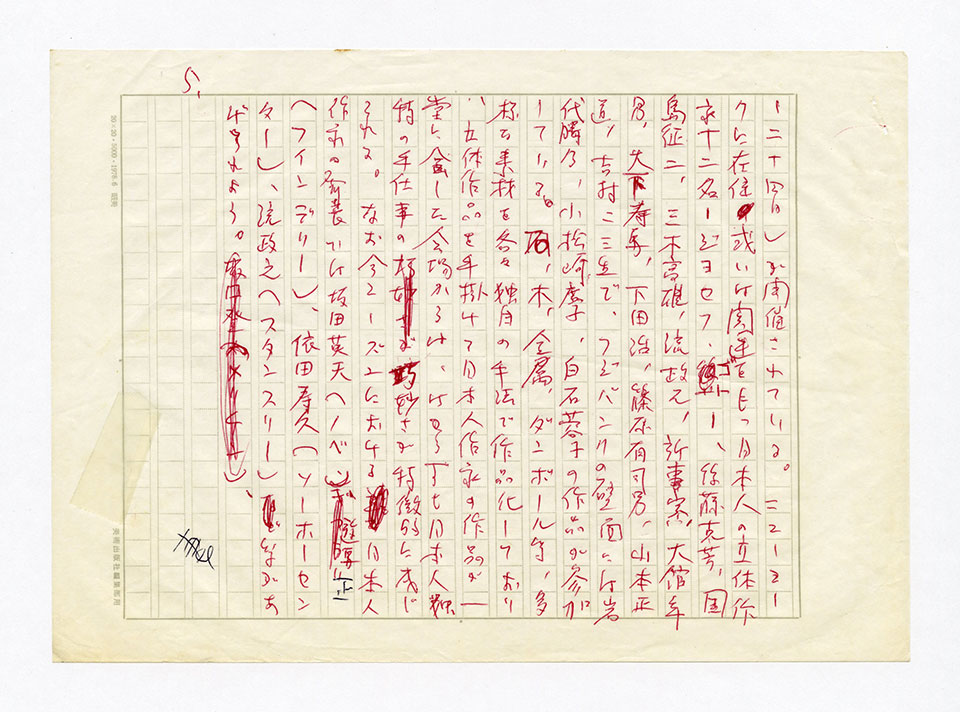 5.
ー二十四日)が開催されている。ニューヨー
クに在住或いは関連をもつ日本人の立体作
家十二名ージョセフ・ゴトー、後藤克芳、国
島征二、三木富雄、流政之、新妻実、大舘年
男、大下寿男、下田治、篠原有司男、山本正
道、吉村二三生で、フジバンクの壁面には岩
代勝乃、小松崎、白石蓉子の作品が参加
している。石、木、金属、ダンボール等、多
様な素材を各々独自の手法で作品化しており
、立体作品を手掛けて日本人作家の作品が一
堂に会した会場からは、はからずも日本人独
特の手仕事の巧妙さが特徴的に感じ
られる。なお今シーズンにおける日本人
作家の発表では坂田英天(ノベ)
(フィンデリー)、依田寿久(ソーホーセン
ター)、流政之(スタンスリー)などがあ
げられよう。
20×20・5000・1978.6
美術出版社編集部用